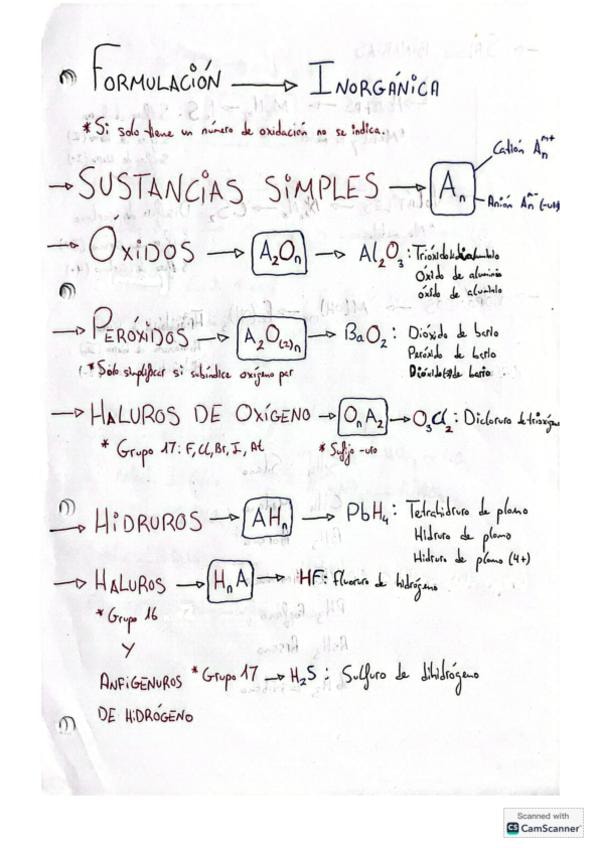 FORMULACIÓN → INORGÁNICA
* Si solo tiene un número de oxidación no se indica.
→ SUSTANCIAS SIMPLES → Aₙ
Catión Aₙᵐ⁺
Anión Aₙᵐ⁻ (-uro)
→ OXIDOS → A₂Oₙ → Al₂O₃: Trióxido de dialuminio
Óxido de aluminio
óxido de aluminio
→ PERÓXIDOS → A₂O₍₂₎ₙ → BaO₂: Dióxido de bario
Peróxido de bario
Dióxido(2-) de bario
* Solo simplificar si subíndice oxígeno par
→ HALUROS DE OXÍGENO → OₙA₂ → O₃Cl₂: Dicloruro de trioxígeno
* Grupo 17: F, Cl, Br, I, At * Sufijo -uro
→ HIDRUROS → AHₙ → PbH₄: Tetrahidruro de plomo
Hidruro de plomo
Hidruro de plomo (4+)
→ HALUROS → HₙA → HF: Fluoruro de hidrógeno
* Grupo 16
Y
ANFIGENUROS * Grupo 17 → H₂S: Sulfuro de dihidrógeno
DE HIDRÓGENO
Scanned with
CS CamScanner